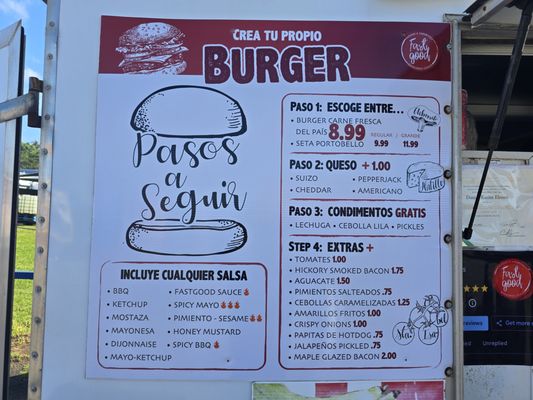 CREA TU PROPIO
BURGER
Fast
good
Pasos
a
Seguir
INCLUYE CUALQUIER SALSA
• BBQ
• KETCHUP
• MOSTAZA
• MAYONESA
• DIJONNAISE
• MAYO-KETCHUP
• FASTGOOD SAUCE
• SPICY MAYO
• PIMIENTO - SESAME
• HONEY MUSTARD
• SPICY BBQ
PASO 1: ESCOGE ENTRE...
• BURGER CARNE FRESCA
DEL PAÍS 8.99 REGULAR / GRANDE
• SETA PORTOBELLO 9.99 11.99
PASO 2: QUESO +1.00
• SUIZO • PEPPERJACK
• CHEDDAR • AMERICANO
PASO 3: CONDIMENTOS GRATIS
• LECHUGA • CEBOLLA LILA • PICKLES
STEP 4: EXTRAS +
• TOMATES 1.00
• HICKORY SMOKED BACON 1.75
• AGUACATE 1.50
• PIMIENTOS SALTEADOS .75
• CEBOLLAS CARAMELIZADAS 1.25
• AMARILLOS FRITOS 1.00
• CRISPY ONIONS 1.00
• PAPITAS DE HOTDOG .75
• JALAPEÑOS PICKLED .75
• MAPLE GLAZED BACON 2.00
Fast
good
reviews
Get more
Unreplied